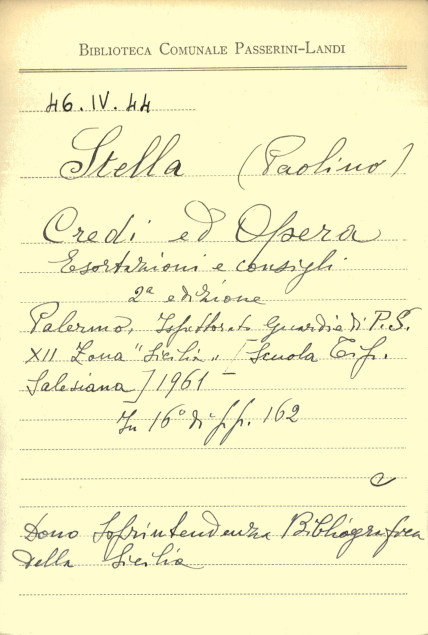 BIBLIOTECA COMUNALE PASSERINI-LANDI
46.IV.44
Stella (Paolino)
Credi ed Opera
Esortazioni e consigli
2ª edizione
Palermo, Ispettorato Guardie di P.S.
XII Zona "Sicilia" [Scuola Tip.
Salesiana] 1961
In 16° di pp. 162
Dono Soprintendenza Bibliografica
della Sicilia